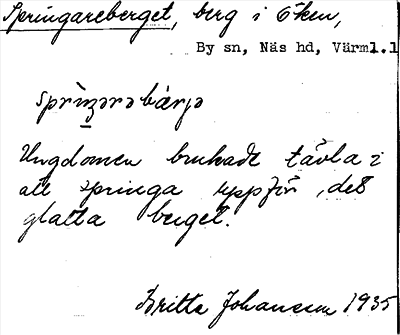 Springareberget, berg i Öken,
By sn, Näs hd, Värml.l
sprìŋərəbærjə
Ungdomen brukade tävla i
att springa uppför det
glatta berget.
Britta Johansson 1935